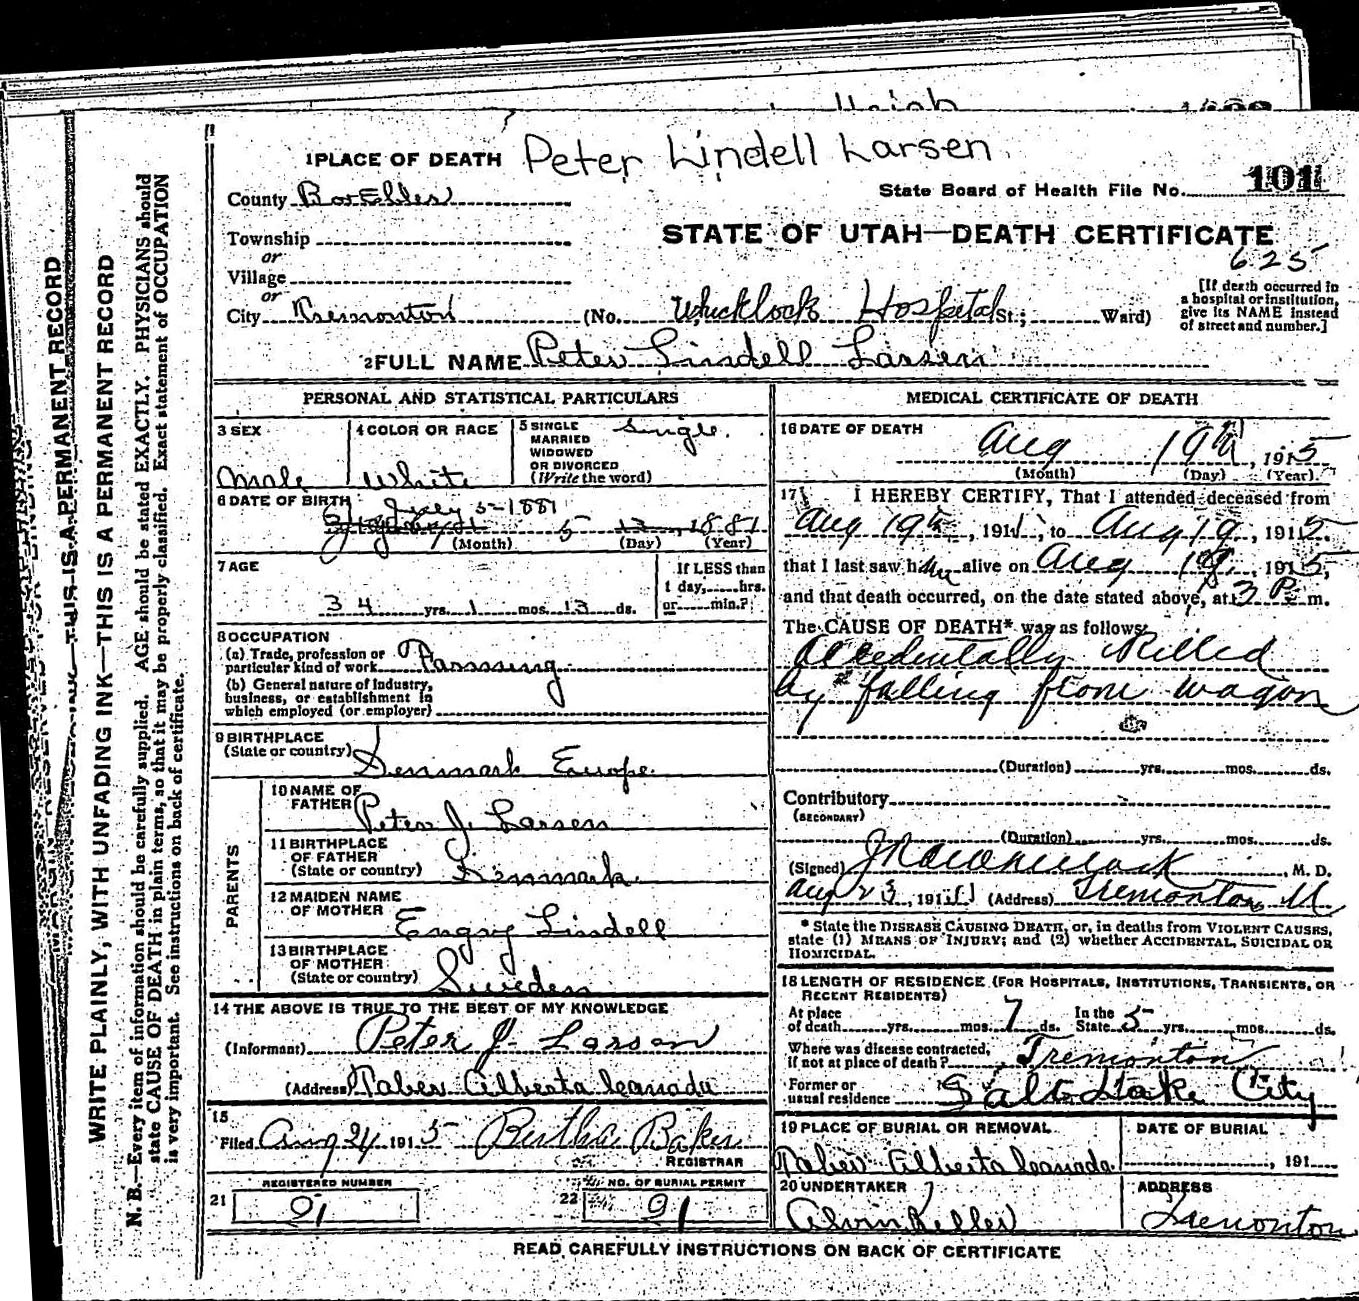 1 PLACE OF DEATH Peter Lindell Larsen
State Board of Health File No. 101
County Box Elder
STATE OF UTAH—DEATH CERTIFICATE
625
Township
or
Village
or
City Tremonton (No. Hospital St.; Ward)
[If death occurred in
a hospital or institution,
give its NAME instead
of street and number.]
2 FULL NAME Peter Lindell Larsen
PERSONAL AND STATISTICAL PARTICULARS
3 SEX
Male
4 COLOR OR RACE
White
5 SINGLE
MARRIED
WIDOWED
OR DIVORCED
(Write the word)
Single.
6 DATE OF BIRTH
July 5-1881
5 13, 1881
(Month) (Day) (Year)
7 AGE
34 yrs. 1 mos. 13 ds.
If LESS than
1 day, hrs.
or min.?
8 OCCUPATION
(a) Trade, profession or
particular kind of work Farming
(b) General nature of industry,
business, or establishment in
which employed (or employer)
9 BIRTHPLACE
(State or country) Denmark Europe.
PARENTS
10 NAME OF
FATHER Peter J. Larsen
11 BIRTHPLACE
OF FATHER
(State or country) Denmark.
12 MAIDEN NAME
OF MOTHER Lindell
13 BIRTHPLACE
OF MOTHER
(State or country) Sweden
14 THE ABOVE IS TRUE TO THE BEST OF MY KNOWLEDGE
(Informant) Peter J. Larsen
(Address) Taber Alberta Canada
15
Filed Aug 24 1915 Bertha Baker
REGISTRAR
21 REGISTERED NUMBER
91
22 NO. OF BURIAL PERMIT
91
MEDICAL CERTIFICATE OF DEATH
16 DATE OF DEATH
Aug 19th, 1915
(Month) (Day) (Year)
17 I HEREBY CERTIFY, That I attended deceased from
Aug 19th, 191, to Aug 19, 1915.
that I last saw him alive on Aug 19, 1915,
and that death occurred, on the date stated above, at 3 P. m.
The CAUSE OF DEATH* was as follows:
Accedentally Killed
by falling from wagon
(Duration) yrs. mos. ds.
Contributory
(SECONDARY)
(Duration) yrs. mos. ds.
(Signed) , M. D.
Aug 23, 191 (Address) Tremonton, U
* State the DISEASE CAUSING DEATH, or, in deaths from VIOLENT CAUSES,
state (1) MEANS OF INJURY; and (2) whether ACCIDENTAL, SUICIDAL OR
HOMICIDAL.
18 LENGTH OF RESIDENCE (FOR HOSPITALS, INSTITUTIONS, TRANSIENTS, OR
RECENT RESIDENTS)
At place
of death yrs. mos. 7 ds. In the
State 5 yrs. mos. ds.
Where was disease contracted,
if not at place of death? Tremonton
Former or
usual residence Salt Lake City
19 PLACE OF BURIAL OR REMOVAL
Taber Alberta Canada.
DATE OF BURIAL
, 191
20 UNDERTAKER
Alvin Keller
ADDRESS
Tremonton
READ CAREFULLY INSTRUCTIONS ON BACK OF CERTIFICATE
WRITE PLAINLY, WITH UNFADING INK—THIS IS A PERMANENT RECORD
N. B.—Every item of information should be carefully supplied. AGE should be stated EXACTLY. PHYSICIANS should
state CAUSE OF DEATH in plain terms, so that it may be properly classified. Exact statement of OCCUPATION
is very important. See instructions on back of certificate.
THIS IS A PERMANENT RECORD